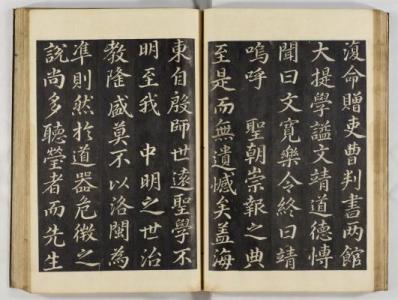 復命贈吏曹判書两館
大提學謚文靖道德愽
聞曰文寬樂令終曰靖
嗚呼 聖朝崇報之典
至是而無遺憾矣盖海
東自殷師世遠聖學不
明至我 中明之世治
敎隆盛莫不以洛閩為
凖則然於道器危微之
說尚多聽瑩者而先生